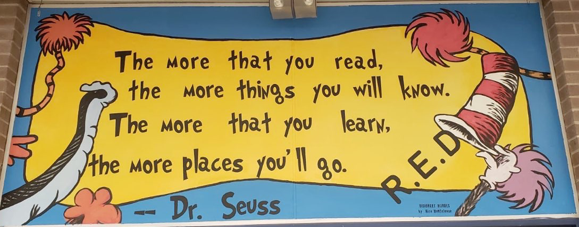 The more that you read,
the more things you will know.
The more that you learn,
the more places you'll go.
— Dr. Seuss
R.E.D